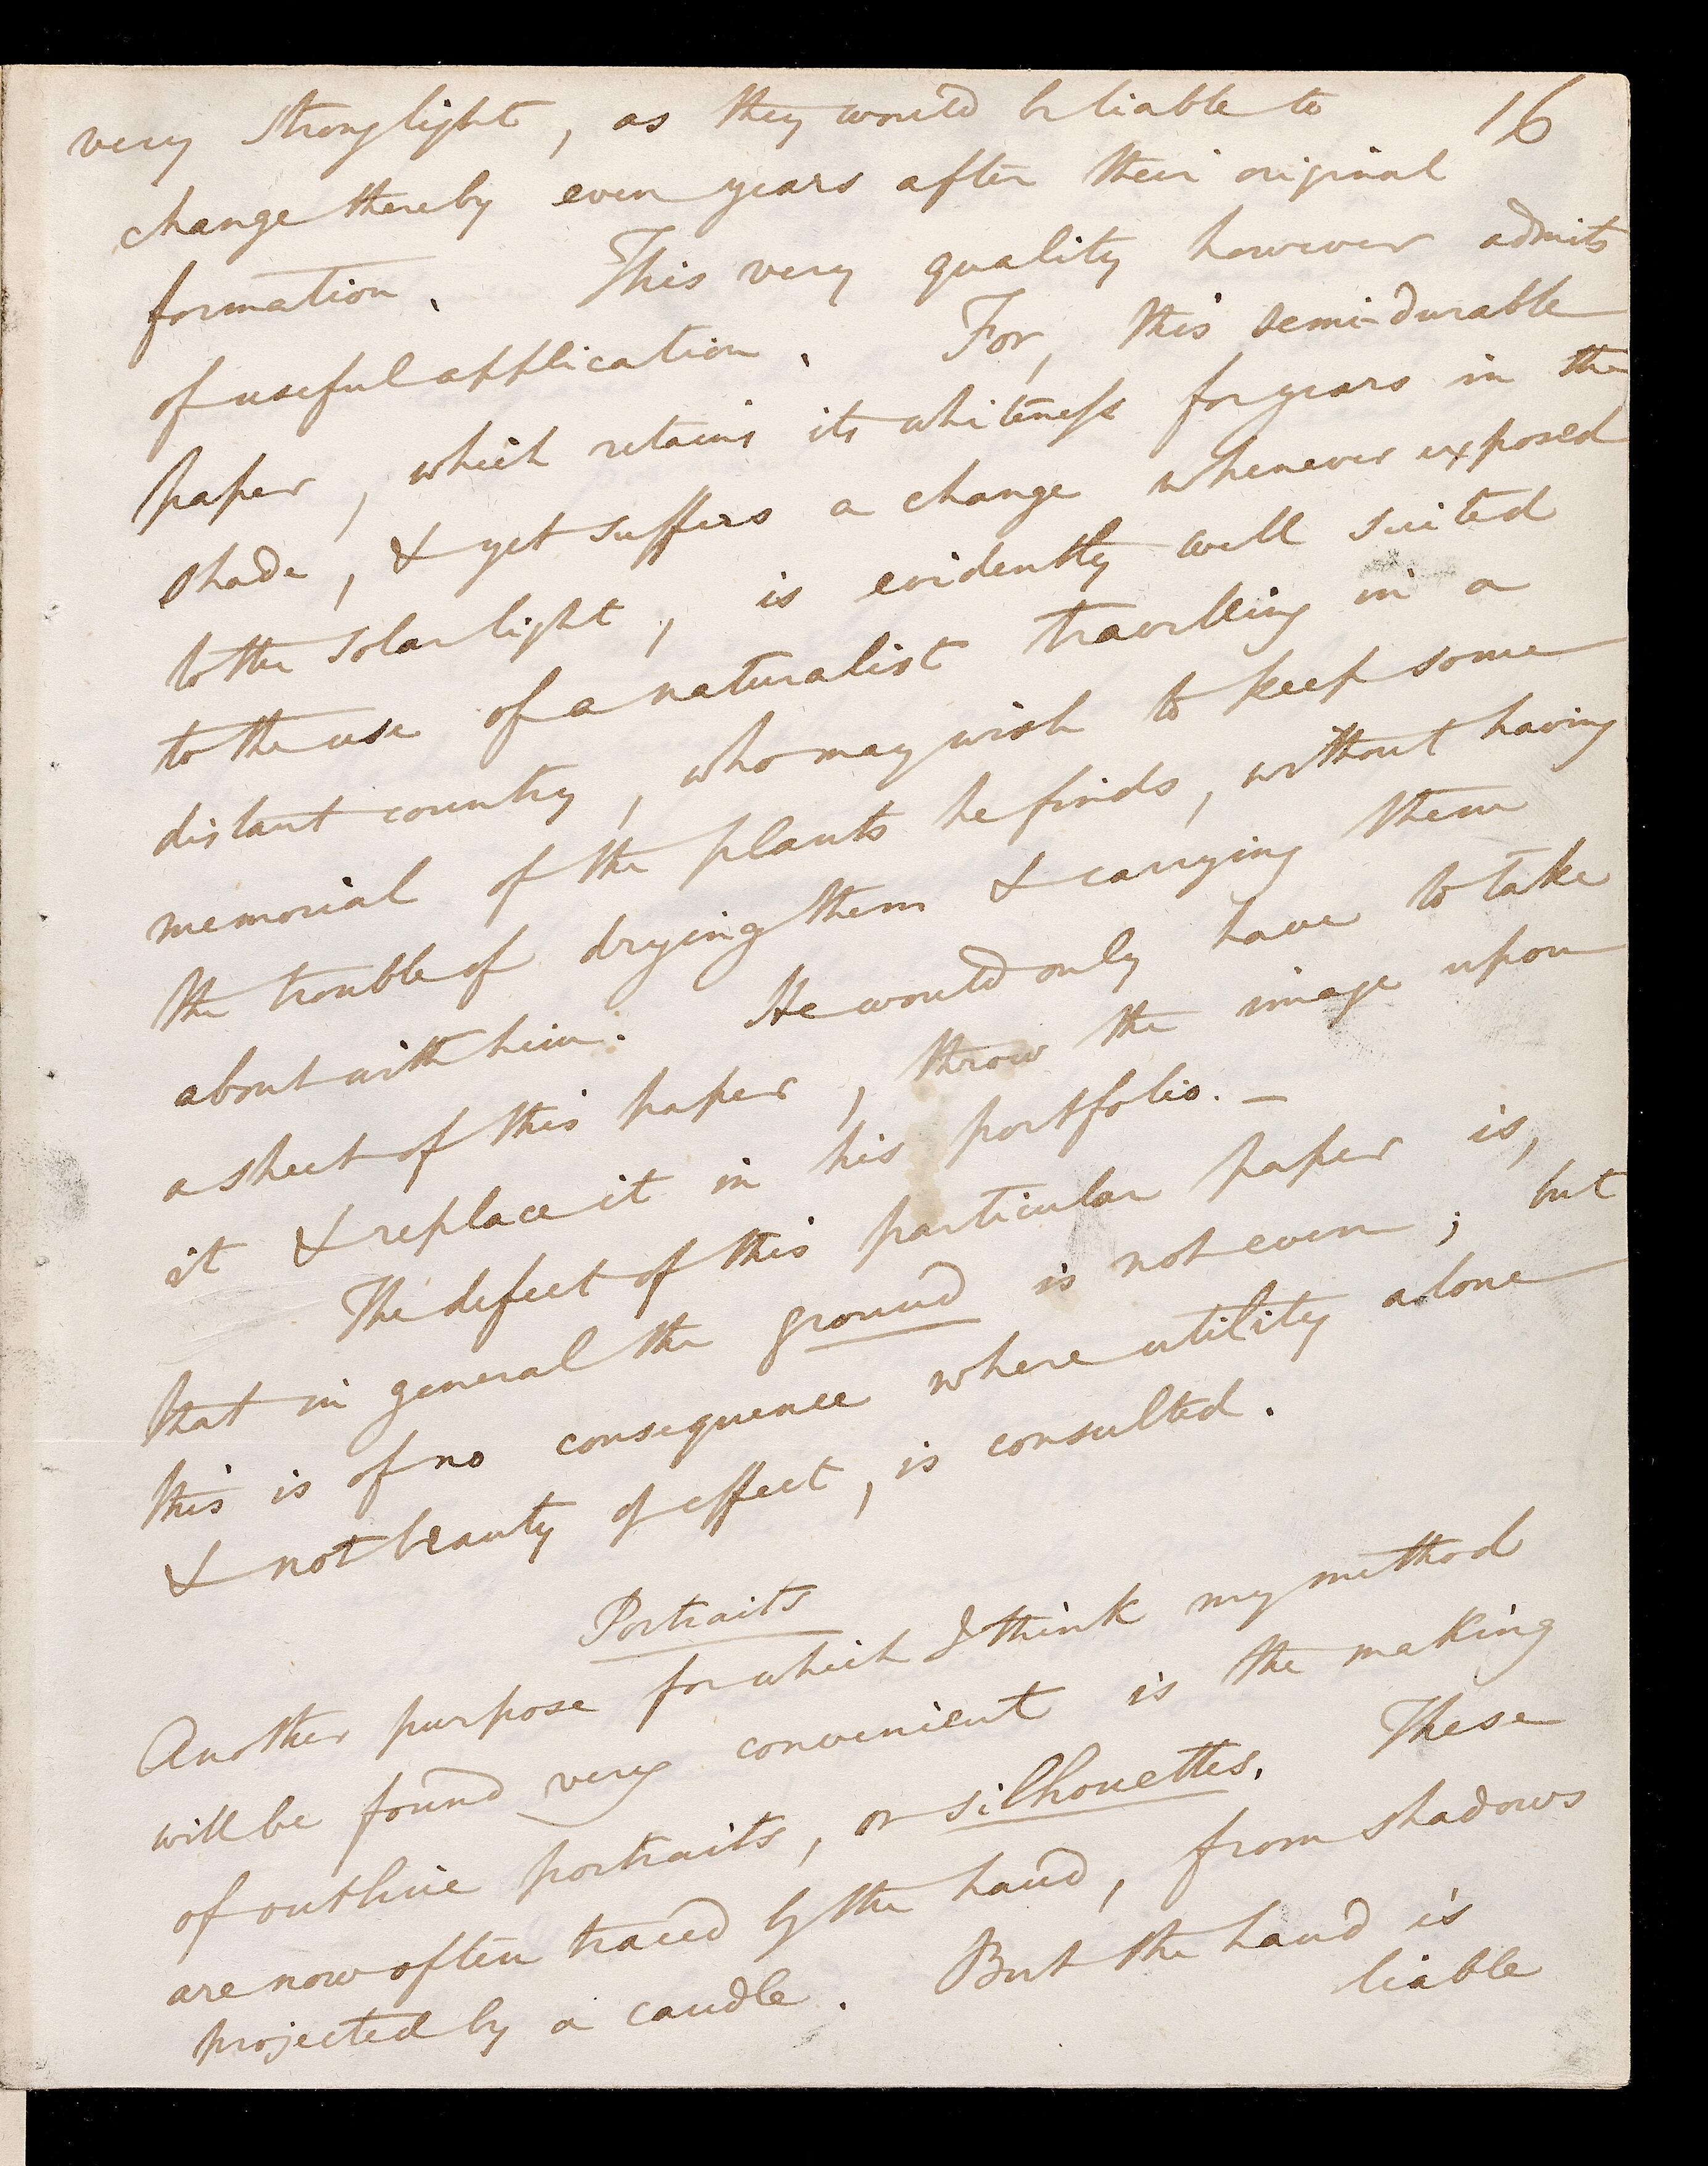 16
very strong light, as they would be liable to
change thereby even years after their original
formation. This very quality however admits
of useful application. For, this semi-durable
paper, which retains its whiteneſs for years in the
shade, & yet suffers a change whenever exposed
to the solar light, is evidently well suited
to the use of a naturalist travelling in a
distant country, who may wish to keep some
memorial of the plants he finds, without having
the trouble of drying them & carrying them
about with him. He would only have to take
a sheet of this paper, throw the image upon
it & replace it in his portfolio. —
The defect of this particular paper is,
that in general the ground is not even; but
this is of no consequence where utility alone
& not beauty of effect, is consulted.
Portraits
Another purpose for which I think my method
will be found very convenient is the making
of outline portraits, or silhouettes. These
are now often traced by the hand, from shadows
projected by a candle. But the hand is
liable